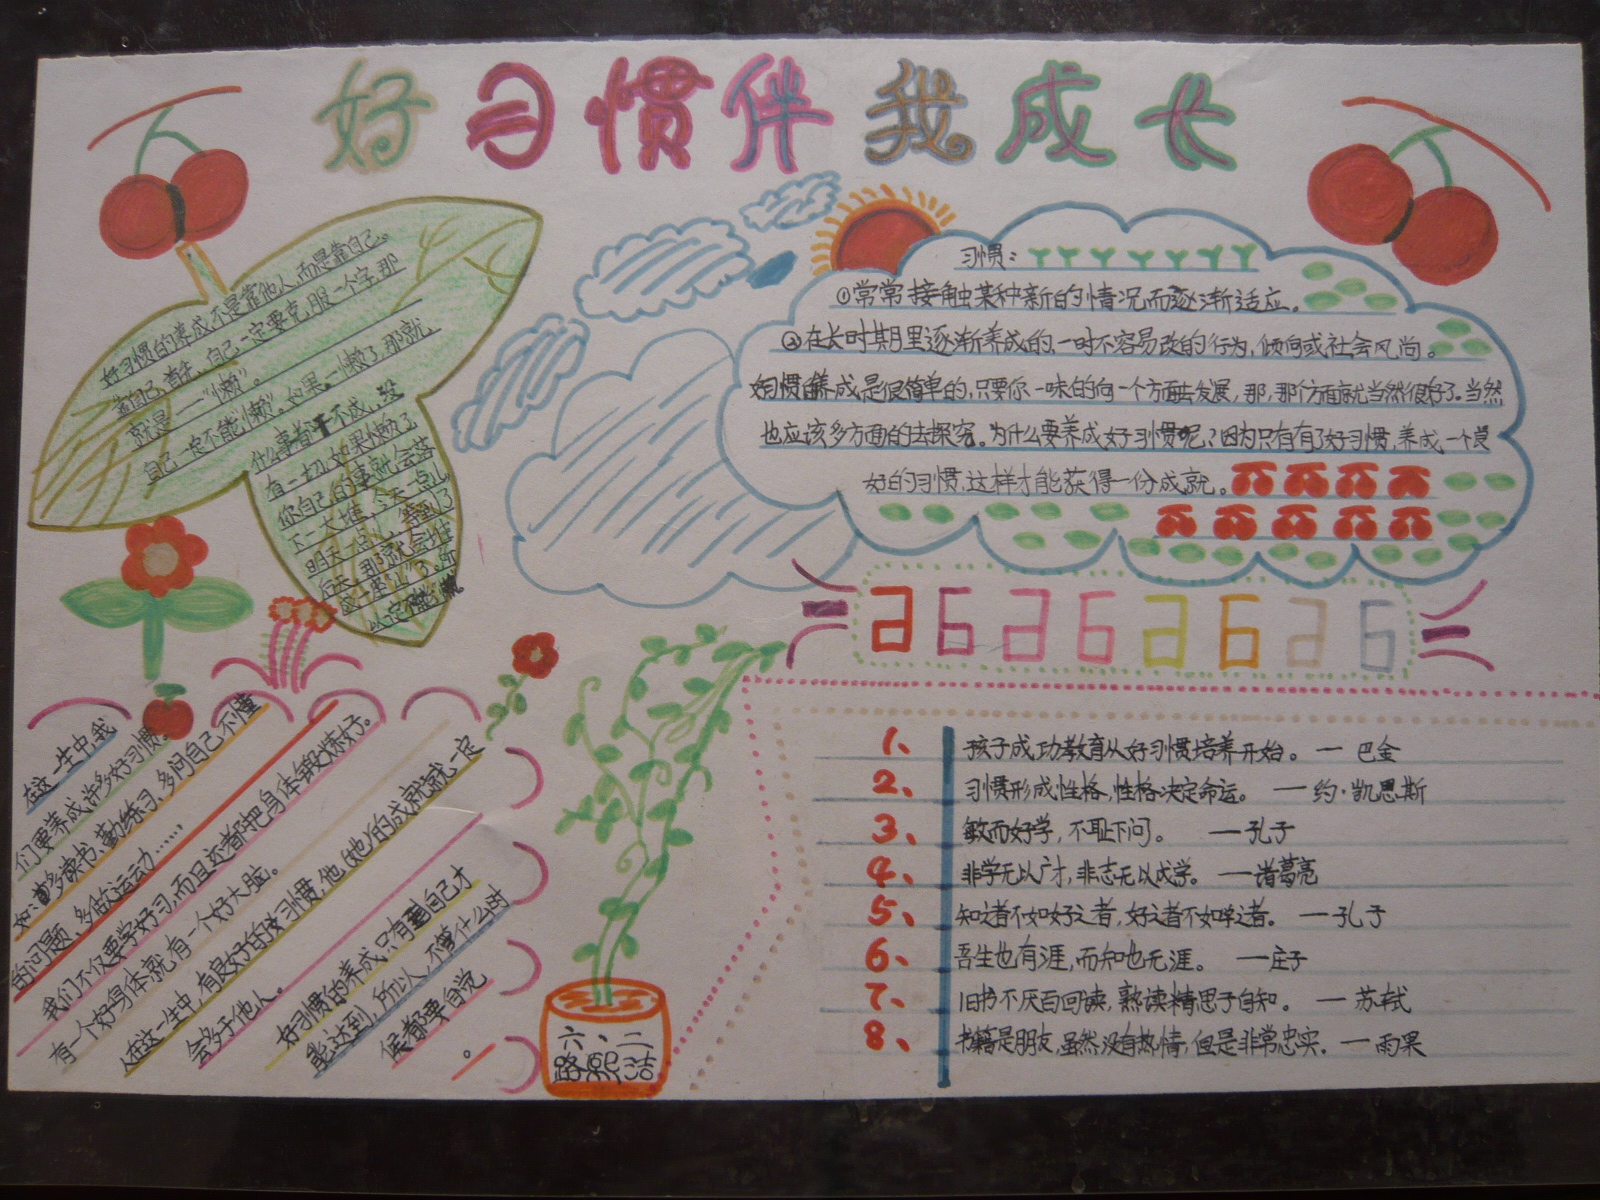 好习惯伴我成长
好习惯的养成不是靠他人,而是靠自己。
靠自己,首先,自己一定要克服一个字,那
就是——"懒"。
自己一定不能"懒"。如果一懒了,那就
什么事都干不成,没
有一切,如果懒了
你自己的事就会落
下一大堆,今天一点儿
明天一点儿,等到了
后天,那就会堆
成一座"山"了。所
以一定不能懒
习惯:
①常常接触某种新的情况而逐渐适应。
②在长时期里逐渐养成的、一时不容易改的行为,倾向或社会风尚。
好习惯的养成是很简单的,只要你一味的向一个方面去发展,那,那个方面就当然很好了。当然
也应该多方面的去探究。为什么要养成好习惯呢,?因为只有有了好习惯,养成一个良
好的习惯,这样才能获得一份成就。
在这一生中我
们要养成许多好习惯。
如:多读书,勤练习、多问自己不懂
的问题、多做运动……
我们不仅要学好习,而且还都把身体锻炼好。
有一个好身体就有一个好大脑。
人在这一生中,有良好的好习惯,他(她)的成就就一定
会多于他人。
好习惯的养成只有到自己才
能达到,所以人,不管什么时
候都要自觉
。
六、二
路熙洁
1、孩子成功教育从好习惯培养开始。 — 巴金
2、习惯形成性格,性格决定命运。 — 约·凯恩斯
3、敏而好学,不耻下问。 — 孔子
4、非学无以广才,非志无以成学。 — 诸葛亮
5、知之者不如好之者,好之者不如乐之者。 — 孔子
6、吾生也有涯,而知也无涯。 — 庄子
7、旧书不厌百回读,熟读精思子自知。 — 苏轼
8、书籍是朋友,虽然没有热情,但是非常忠实。 — 雨果